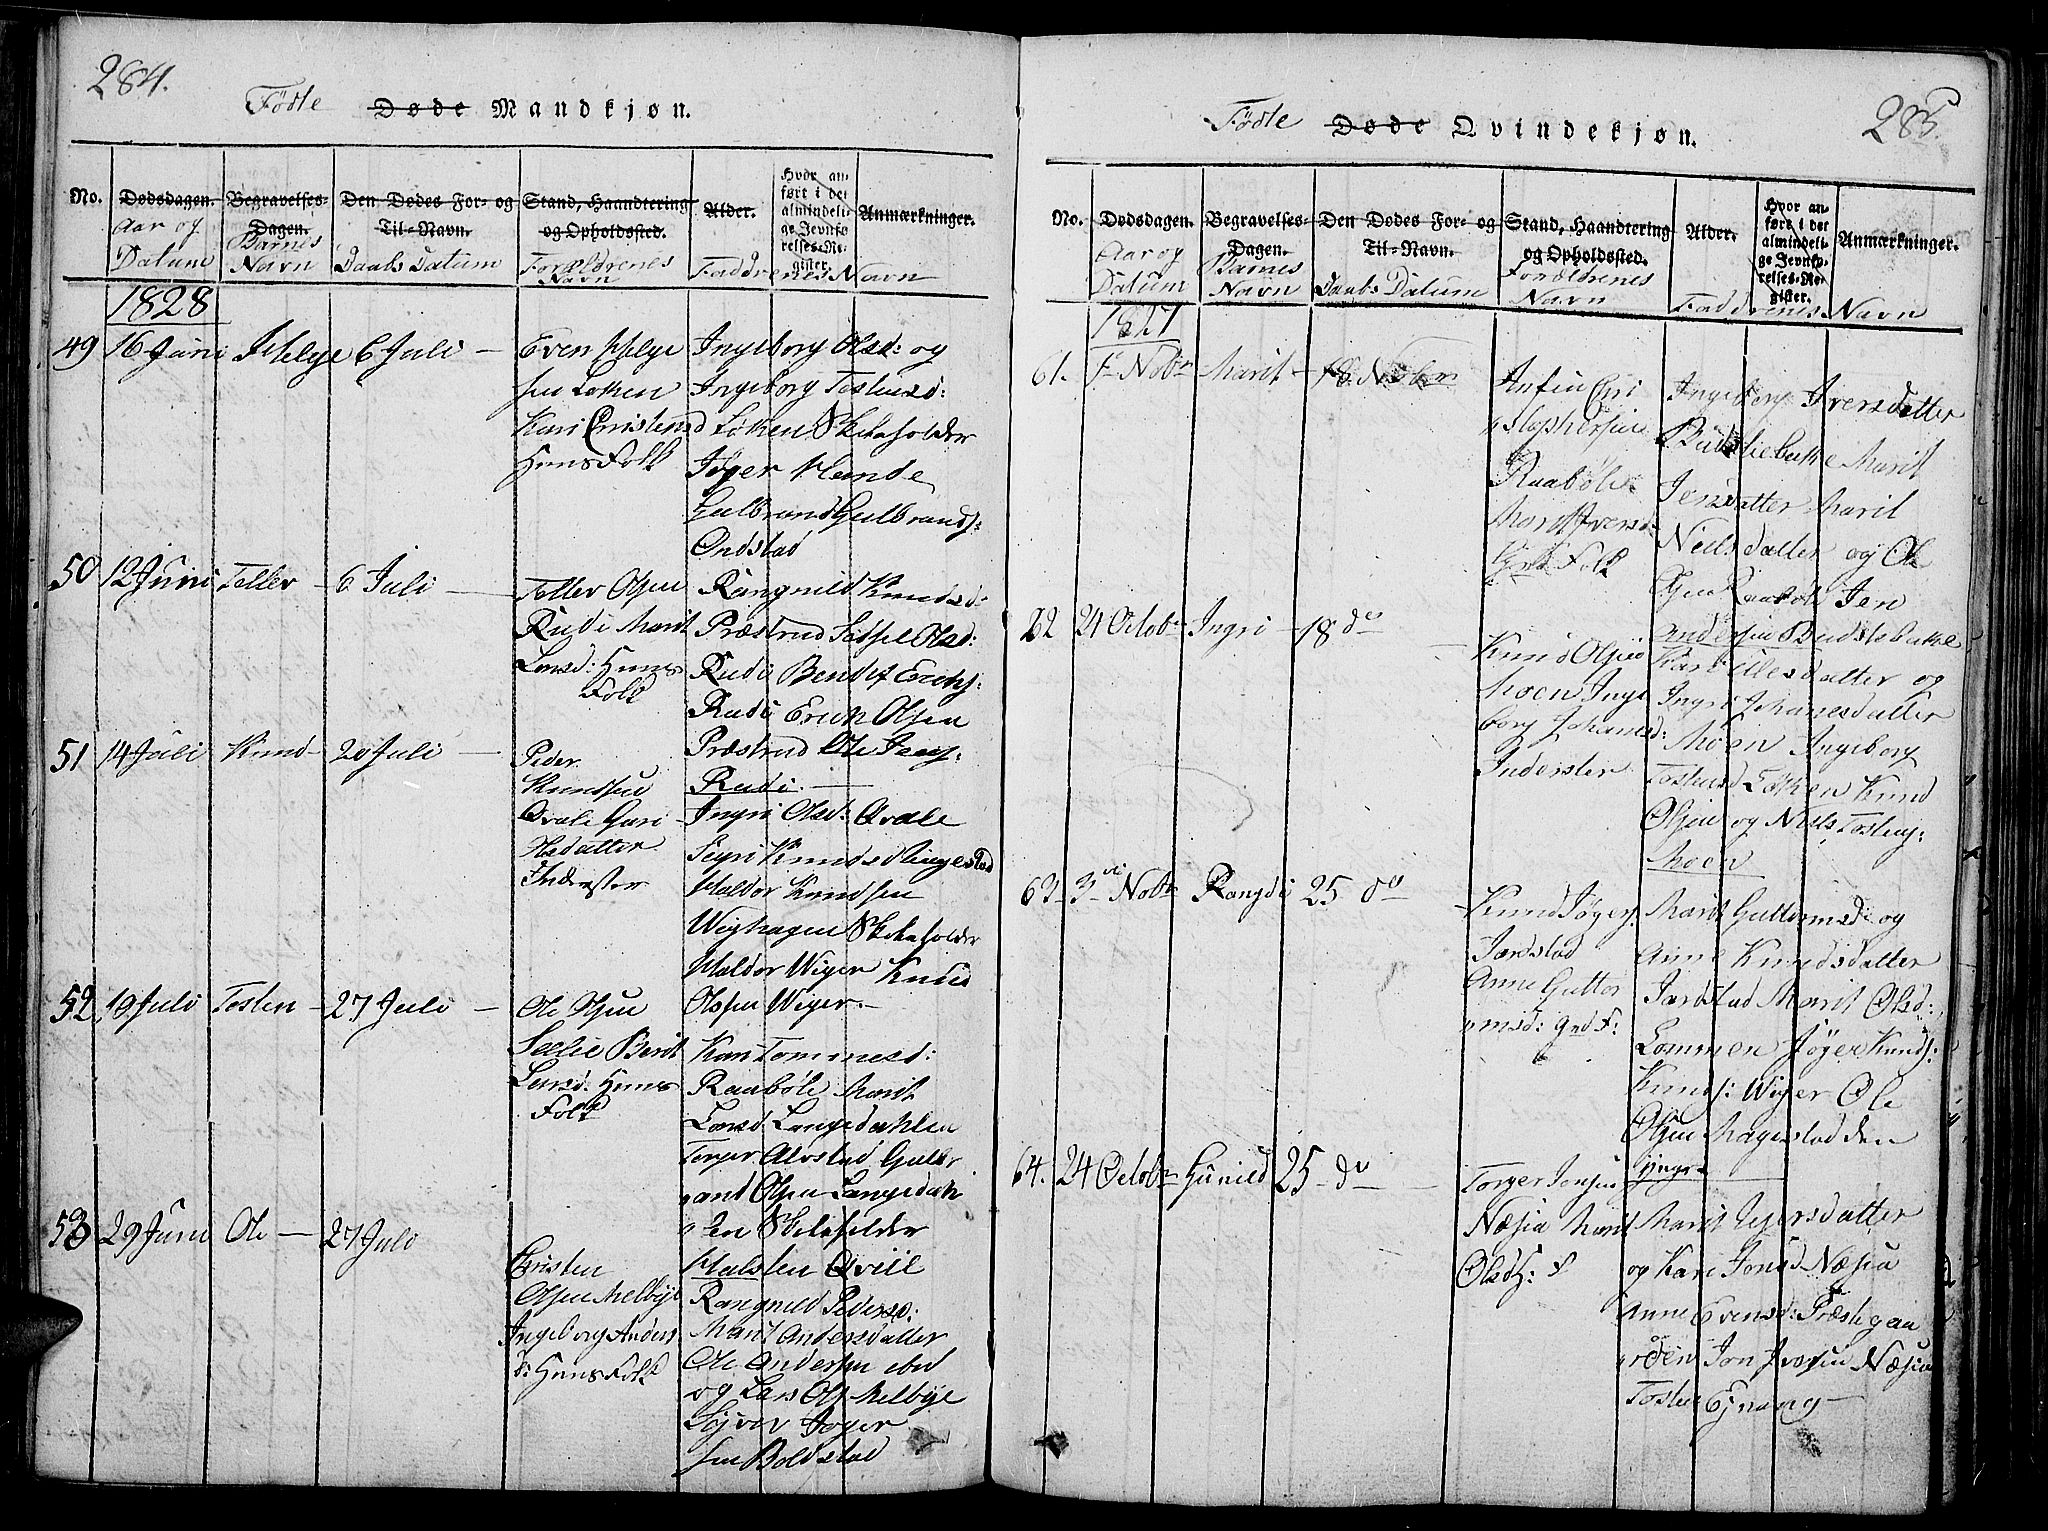 284.
Födte Døde Mandkjøn.
No.
Dødsdagen.
Aar og
Datum
Begravelses-
Dagen.
Barnes
Navn
Den Dødes For- og
Til-Navn.
Daabs Datum
Stand, Haandtering
og Opholdsted.
Forældrenes
Navn
Alder.
Hvor an-
ført i det
almindeli-
ge Jevnfø-
relses-Re-
gister.
Anmærkninger.
Faddrenes Navn
1828
49 16 Juni Helge 6 Juli —
Even Helge
sen Loken
Kari Cristensd
Huns Folk
Ingeborg Olsd: og
Ingeborg Tostensd:
Löken Skeaholder
Jöger Hande
Gulbrand Gulbrands:
Ondstad
50 12 Juni Toller — 6 Juli —
Toller Olsen
Rudi Marit
Larsd: Huns
Folk
Rangnild Knudsd:
Præstrud Sidsel Olsd:
Rudi Bendt Erichs:
Rudi Erick Olsen
Præstrud Ole Jens:
Rudi. —
51 14 Juli Knud — 20 Juli —
Peder
Knudsen
Qvale Guri
Olsdatter
Inderster
Ingri Olsd: Qvale
Sigri Knudsd Ringestad
Haldor Knudsen
Wighagen Skeaholder
Haldor Wiger Knud
Olsen Wiger. —
52 19 Juli Tosten — 27 Juli —
Ole Olsen
Selie Berit
Larsd: Huns
Folk
Kari Tommesd:
Raaböle Marit
Larsd. Langedahlen
Torger Alvstad Gulbr
and Olsen Langedah
len Skeaholder
Halsten Qvill
53 29 Juni Ole — 27 Juli
Cristen
Olsen Melbye
Ingeborg Anders
d: Huns Folk
Rangnild Pedersd:
Marit Andersdatter
Ole Andersen ibid
og Lars Ols: Melbye
Sjver Joger
sen Boldstad
285.
Födte Døde Qvindekjøn.
No.
Dødsdagen.
Aar og
Datum
Begravelses-
Dagen.
Barnes
Navn
Den Dødes For- og
Til-Navn.
Daabs Datum
Stand, Haandtering
og Opholdsted.
Forældrenes
Navn
Alder.
Hvor an-
ført i det
almindeli-
ge Jevnfø-
relses-Re-
gister.
Anmærkninger.
Faddrenes Navn
1827
61. Nobr Marit — 18 Nobr
Anfin Chri
stophersen
Raaböle
Marit Iversd
Grd Folk
Ingeborg Iversdatter
Budsliebakke Marit
Jensdatter Marit
Nielsdatter og Ole
Olsen Raaböle Jen
Andersen Budslebakke
62 24 Octobr Ingri — 18 do —
Knud Olsen
Moen Inge
borg Johansd:
Inderster
Kari Illesdatter og
Ingri Johanesdatter
Moen Ingeborg
Tostensd Löken Knud
Olsen og Niels Tostens:
Moen
63 3die Nobr Rangdi 25 do —
Knud Jögers:
Jarstad
Anne Guttor
msd: grd F:
Marit Guttormsd: og
Anne Knudsdatter
Jarstad Marit Olsd:
Lommen Jöger Knuds:
Knuds: Wiger Ole
Olsen Magestad den
yngre
64. 24 Octobr Gunild 25 — do —
Torger Jonsen
Næsia Marit
Olsd H: F
Marit Jegersdatter
og Kari Jonsd Næsia
Anne Evensd: Præstegaa
rden Jon Iversen Næsia
Tosten Ejnang —